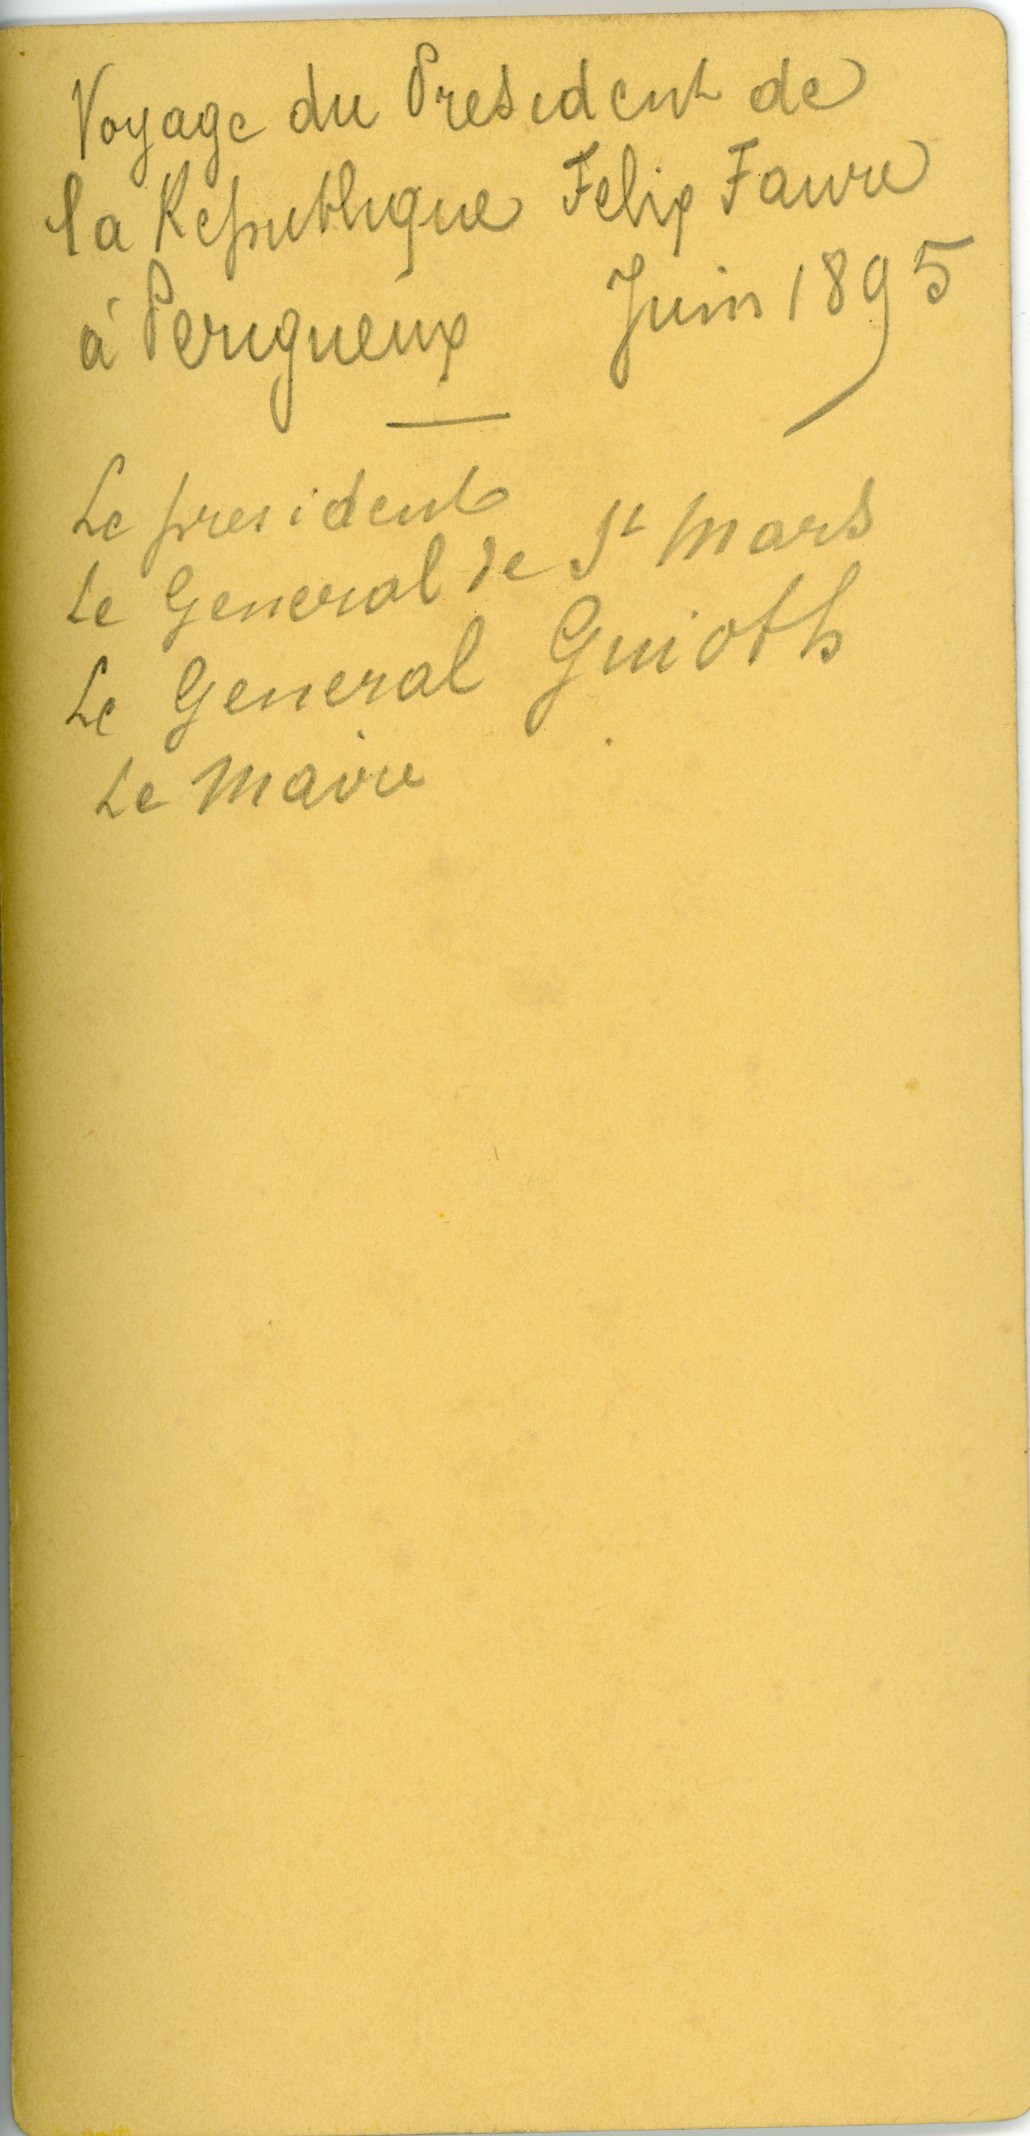 Voyage du President de
la Republique Felix Faure
à Perigueux Juin 1895
Le president
Le General de St Mars
Le General Guioth
Le Maire